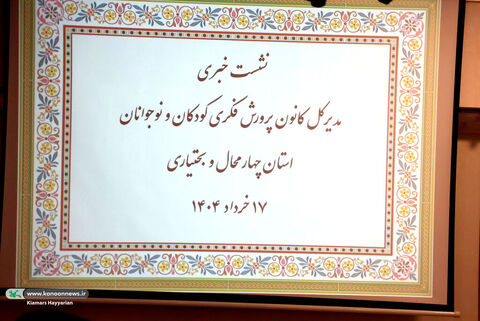 نشست خبری
مدیرکل کانون پرورش فکری کودکان و نوجوانان
استان چهارمحال و بختیاری
۱۷ خرداد ۱۴۰۴
www.kanoonnews.ir
Kiamars Hayyarian